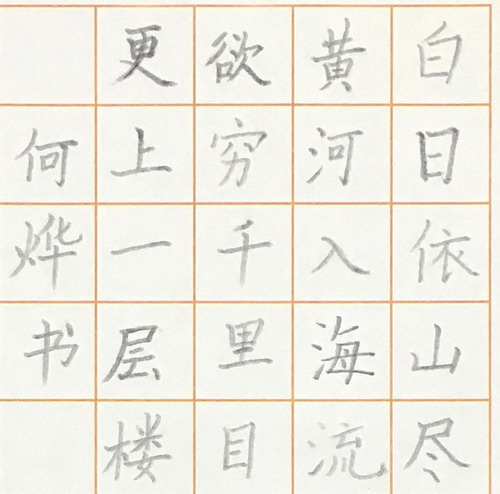 白日依山尽
黄河入海流
欲穷千里目
更上一层楼
何烨书